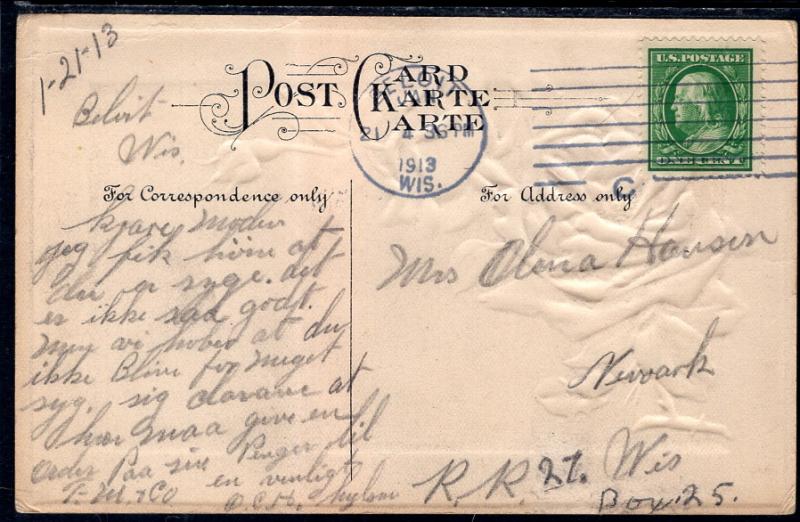 1-21-13
Beloit
Wis.
POST CARD
KARTE
CARTE
BELOIT
21
36 PM
1913
WIS.
U.S. POSTAGE
ONE CENT
C
For Correspondence only
For Address only
kjare Moder
jeg fik höre at
du er syge. det
er ikke saa godt.
men vi hober at du
ikke Blive for meget
syg. sig at
han maa give en
order Paa sine Penger til
en venligt
Mrs Olena Hansen
Newark
R.R. 27. Wis
Box. 25.